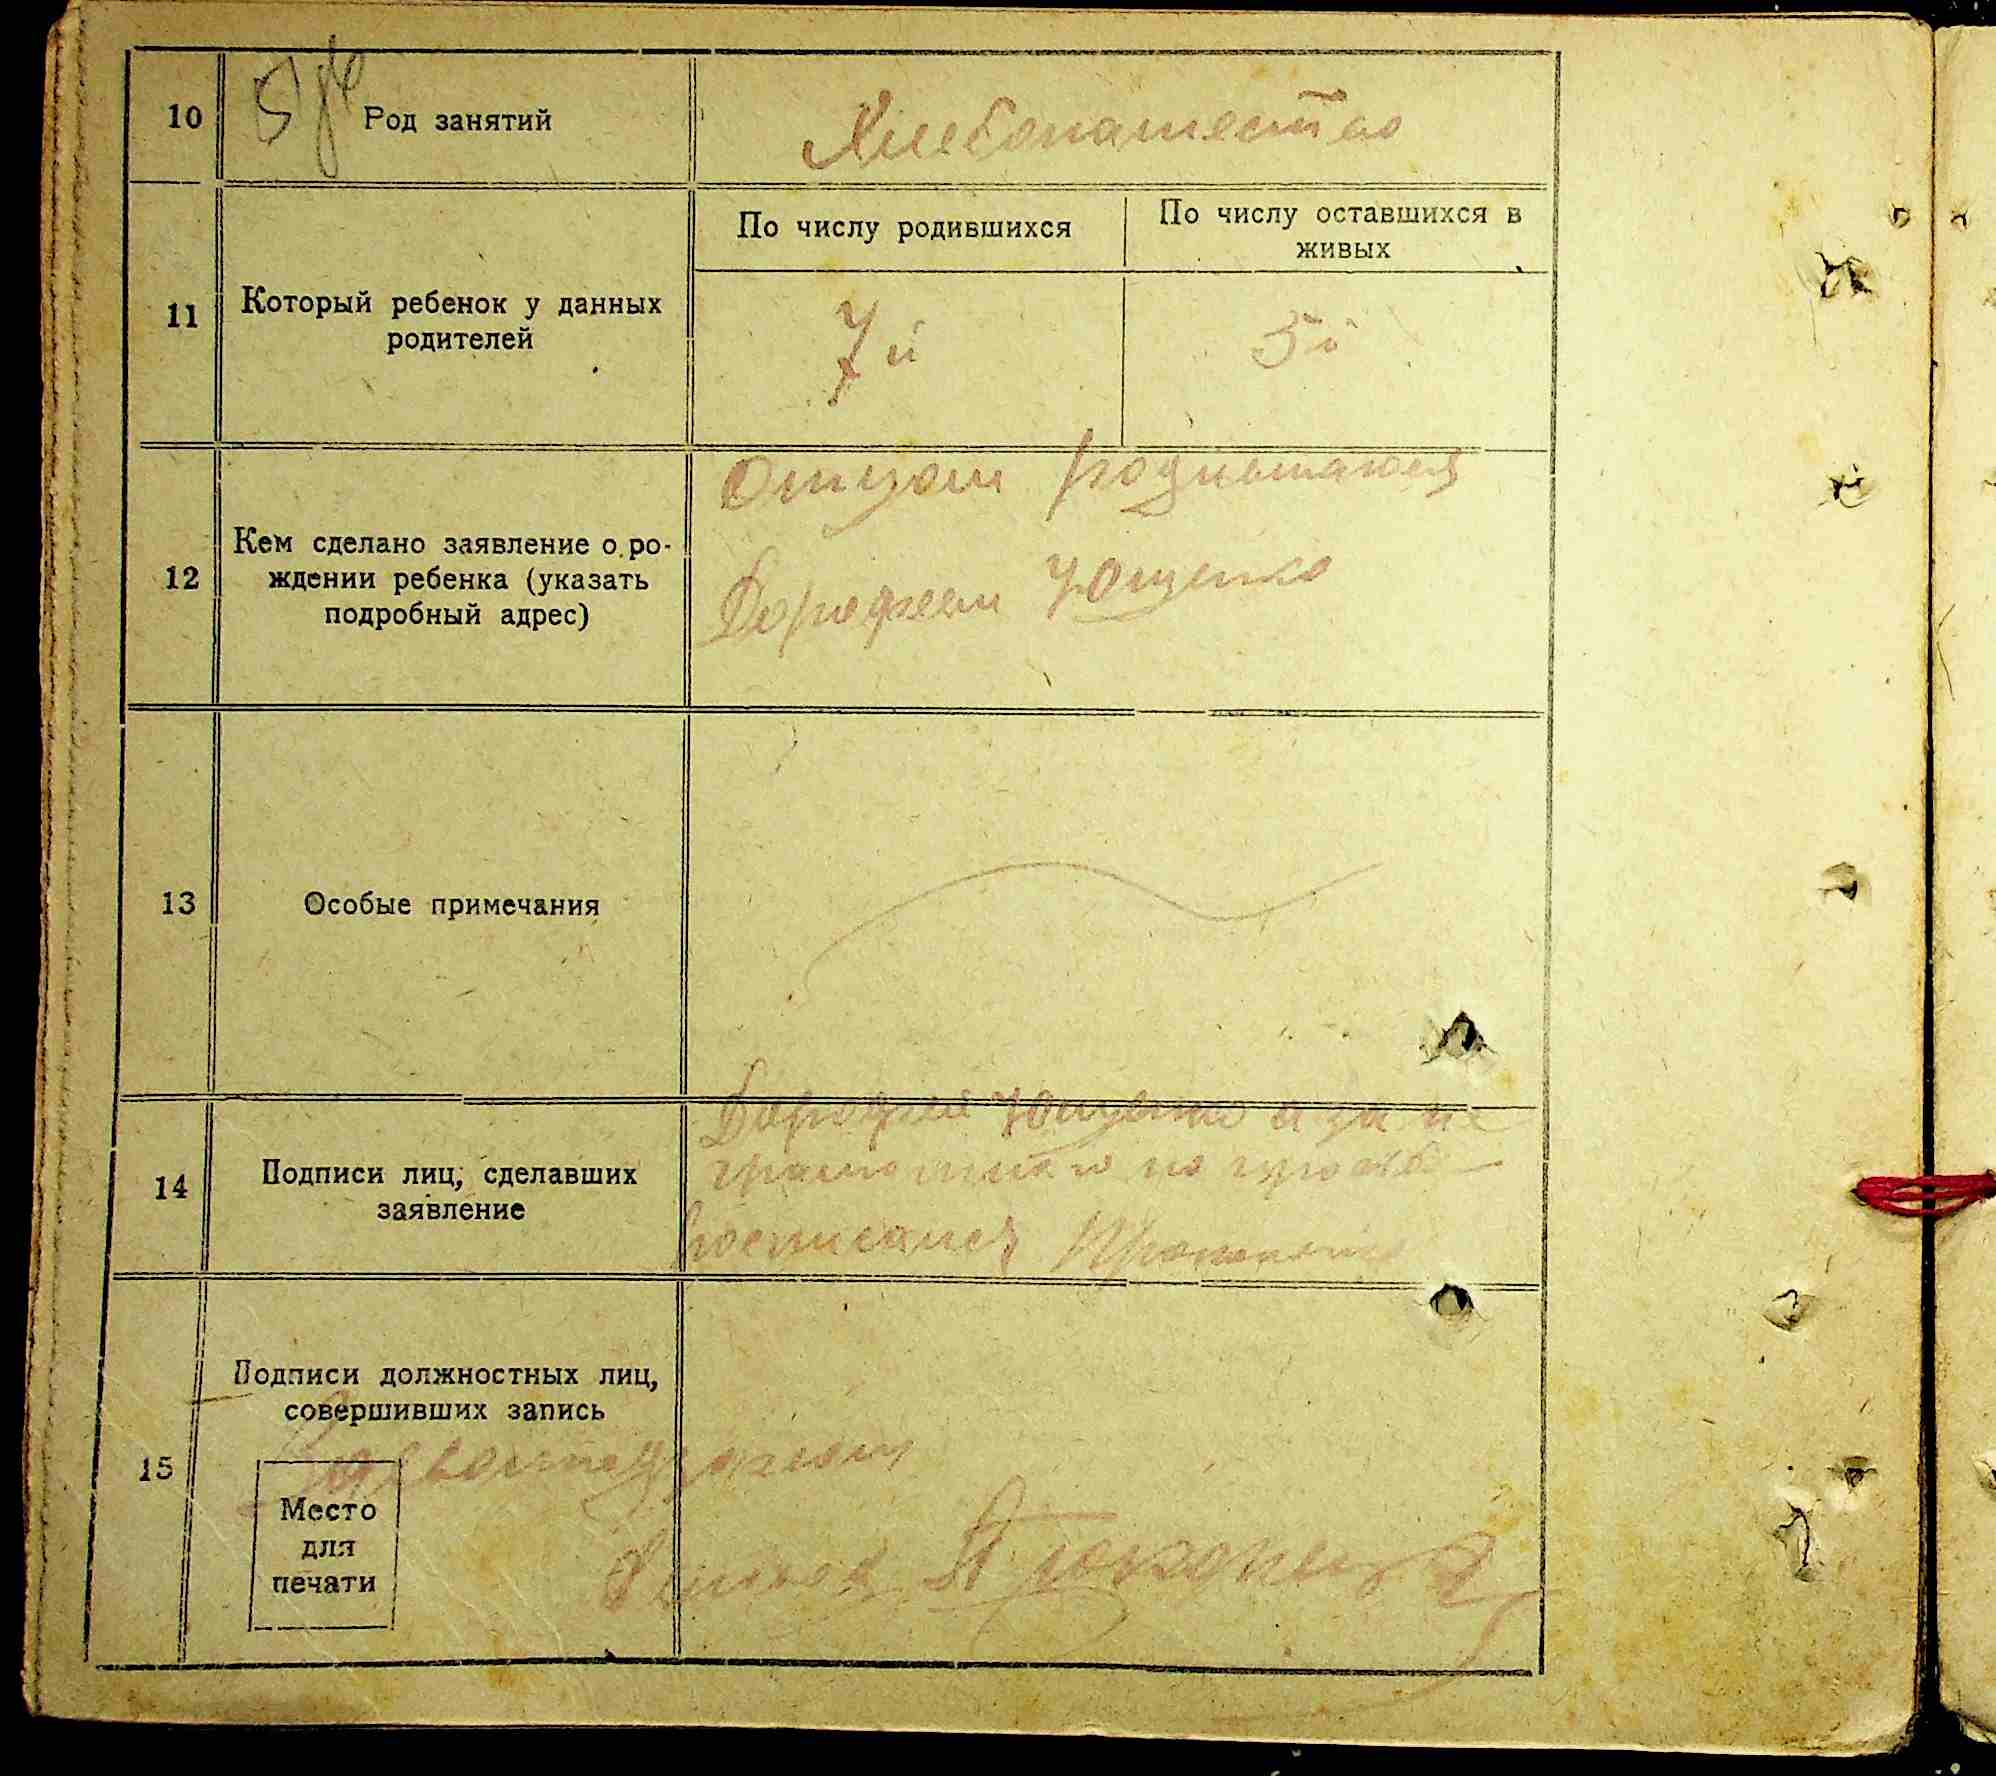 10
Род занятий
Хлебопашество
11
Который ребенок у данных
родителей
По числу родившихся
По числу оставшихся в
живых
7й
5й
12
Кем сделано заявление о ро-
ждении ребенка (указать
подробный адрес)
Отцом
Дорофеем Ющенко
13
Особые примечания
14
Подписи лиц, сделавших
заявление
Дорофей Ющенко а за не
грамотного по просьбе
росписался
15
Подписи должностных лиц,
совершивших запись
Место
для
печати